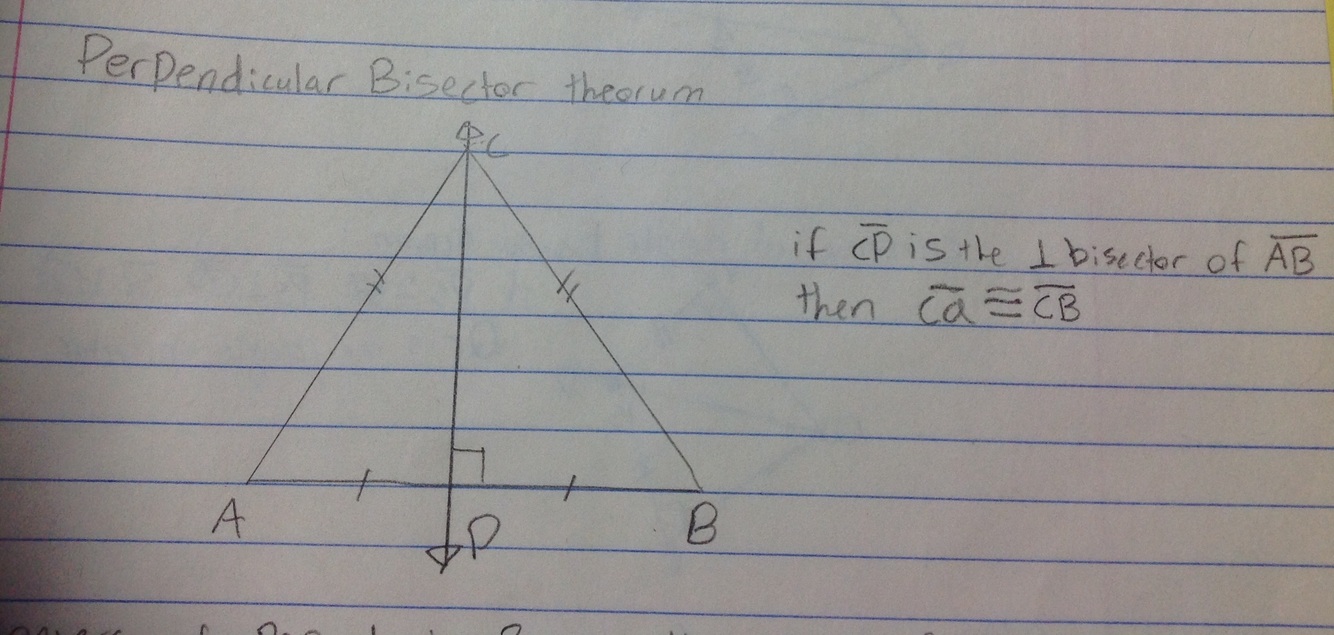 Perpendicular Bisector theorum
C
if C̅P̅ is the ⊥ bisector of A̅B̅
then C̅a̅ ≅ C̅B̅
A P B